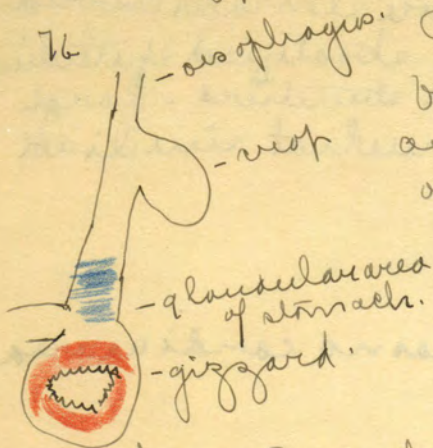 76
oesophagus.
crop
glandular area
of stomach.
gizzard.